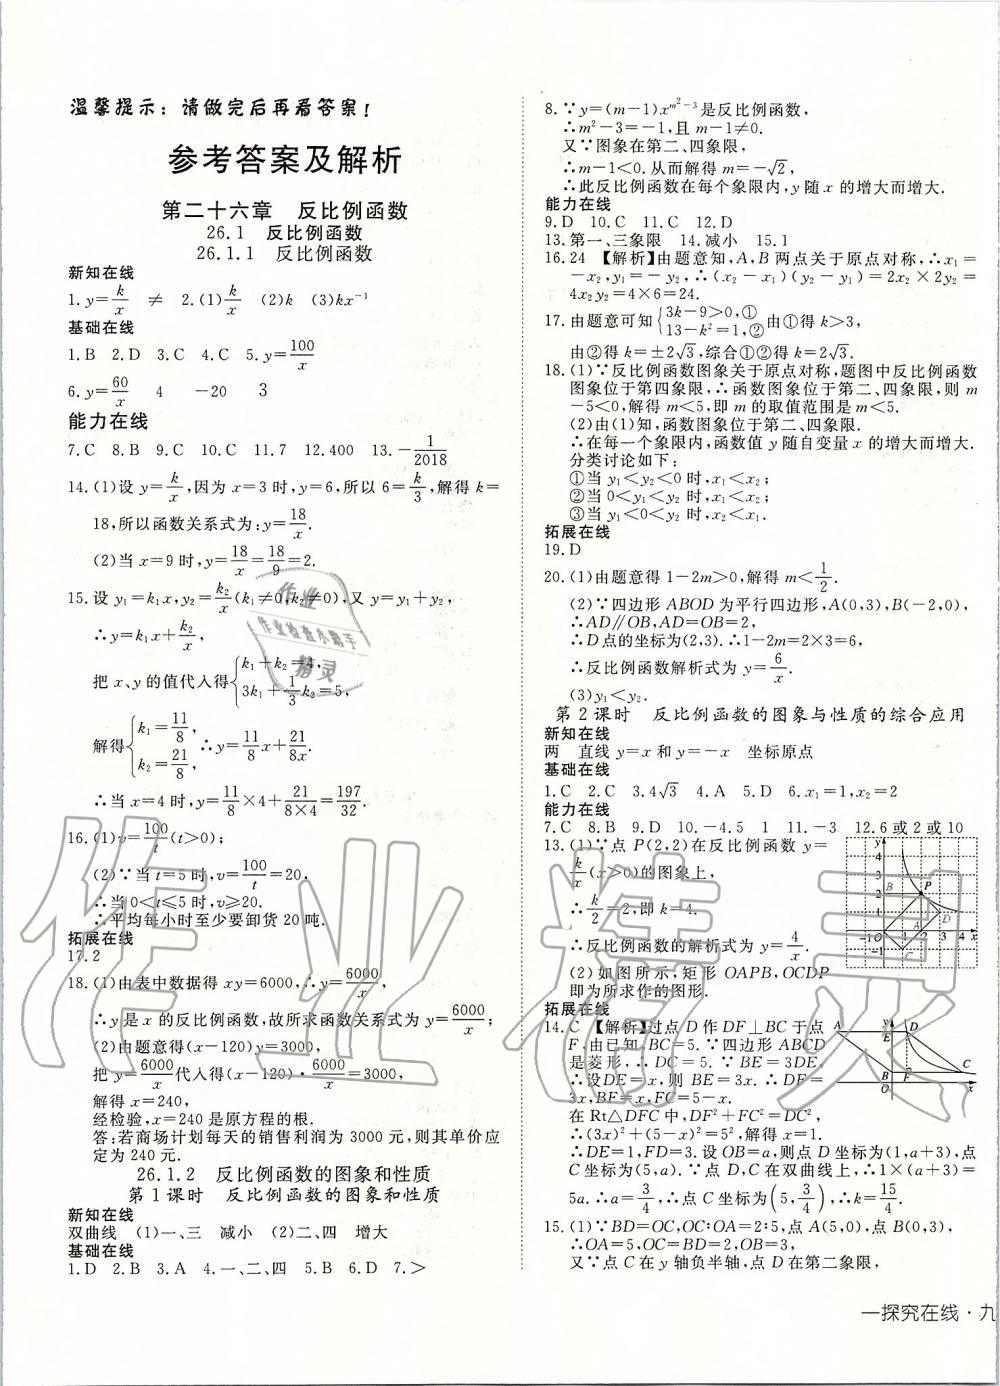 温馨提示：请做完后再看答案！
参考答案及解析
第二十六章　反比例函数
26.1　反比例函数
26.1.1　反比例函数
新知在线
1.y=k/x　≠　2.(1)k/x　(2)k　(3)kx⁻¹
基础在线
1.B　2.D　3.C　4.C　5.y=100/x
6.y=60/x　4　-20　3
能力在线
7.C　8.B　9.C　10.C　11.7　12.400　13.-1/2018
14.(1)设 y=k/x,因为 x=3 时,y=6,所以 6=k/3,解得 k=
18,所以函数关系式为:y=18/x.
(2)当 x=9 时,y=18/x=18/9=2.
15.设 y₁=k₁x,y₂=k₂/x(k₁≠0,k₂≠0),又 y=y₁+y₂,
∴y=k₁x+k₂/x.
把 x、y 的值代入得{k₁+k₂=4, 3k₁+1/3k₂=5,
解得{k₁=11/8, k₂=21/8, ∴y=11/8x+21/8x.
∴当 x=4 时,y=11/8×4+21/(8×4)=197/32.
16.(1)v=100/t(t>0);
(2)∵当 t=5 时,v=100/t=20,
∴当 0<t≤5 时,v≥20.
∴平均每小时至少要卸货 20 吨.
拓展在线
17.2
18.(1)由表中数据得 xy=6000,∴y=6000/x,
∴y是x的反比例函数,故所求函数关系式为 y=6000/x;
(2)由题意得(x-120)y=3000,
把 y=6000/x代入得(x-120)·6000/x=3000,
解得 x=240,
经检验,x=240 是原方程的根.
答:若商场计划每天的销售利润为 3000 元,则其单价应
定为 240 元.
26.1.2　反比例函数的图象和性质
第 1 课时　反比例函数的图象和性质
新知在线
双曲线　(1)一、三　减小　(2)二、四　增大
基础在线
1.D　2.B　3.A　4.一、二、四　5.B　6.D　7.>
8.∵y=(m-1)x^{m²-3}是反比例函数,
∴m²-3=-1,且 m-1≠0.
又∵图象在第二、四象限,
∴m-1<0.从而解得 m=-√2,
∴此反比例函数在每个象限内,y随 x 的增大而增大.
能力在线
9.D　10.C　11.C　12.D
13.第一、三象限　14.减小　15.1
16.24　【解析】由题意知,A,B 两点关于原点对称,∴x₁=
-x₂,y₁=-y₂,∴(x₂-x₁)(y₂-y₁)=2x₂×2y₂=
4x₂y₂=4×6=24.
17.由题意可知{3k-9>0,① 13-k²=1,② 由①得 k>3,
由②得 k=±2√3,综合①②得 k=2√3.
18.(1)∵反比例函数图象关于原点对称,题图中反比例函数
图象位于第四象限,∴函数图象位于第二、四象限,则 m
-5<0,解得 m<5,即 m 的取值范围是 m<5.
(2)由(1)知,函数图象位于第二、四象限.
∴在每一个象限内,函数值 y 随自变量 x 的增大而增大.
分类讨论如下:
①当 y₁<y₂<0 时,x₁<x₂;
②当 0<y₁<y₂ 时,x₁<x₂;
③当 y₁<0<y₂ 时,x₂<x₁.
拓展在线
19.D
20.(1)由题意得 1-2m>0,解得 m<1/2.
(2)∵四边形 ABOD 为平行四边形,A(0,3),B(-2,0),
∴AD∥OB,AD=OB=2,
∴D 点的坐标为(2,3).∴1-2m=2×3=6,
∴反比例函数解析式为 y=6/x.
(3)y₁<y₂.
第 2 课时　反比例函数的图象与性质的综合应用
新知在线
两　直线 y=x 和 y=-x　坐标原点
基础在线
1.C　2.C　3.4√3　4.A　5.D　6.x₁=1,x₂=2
能力在线
7.C　8.B　9.D　10.-4.5　1　11.-3　12.6 或 2 或 10
13.(1)∵点 P(2,2)在反比例函数 y=
k/x(x>0)的图象上,
∴k/2=2,即 k=4.
∴反比例函数的解析式为 y=4/x.
(2)如图所示,矩形 OAPB,OCDP
即为所求作的图形.
拓展在线
14.C　【解析】过点 D 作 DF⊥BC于点
F,由已知 BC=5.∵四边形 ABCD
是菱形,∴DC=5.∵BE=3DE,
∴设 DE=x,则 BE=3x.∴DF=
3x,BF=x,FC=5-x.
在 Rt△DFC 中,DF²+FC²=DC²,
∴(3x)²+(5-x)²=5²,解得 x=1.
∴DE=1,FD=3.设 OB=a,则点 D 坐标为(1,a+3),点
C坐标为(5,a).∵点 D、C 在双曲线上,∴1×(a+3)=
5a.∴a=3/4,∴点 C 坐标为(5,3/4),∴k=15/4.
15.(1)∵BD=OC,OC∶OA=2∶5,点 A(5,0),点 B(0,3),
∴OA=5,OC=BD=2,OB=3,
又∵点 C 在 y 轴负半轴,点 D 在第二象限,
一探究在线·九